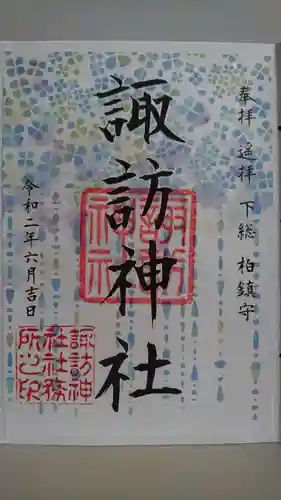 奉拝 遥拝 下総 柏鎮守
諏訪神社
令和二年六月吉日
諏訪神社
諏訪神
社社務
所之印